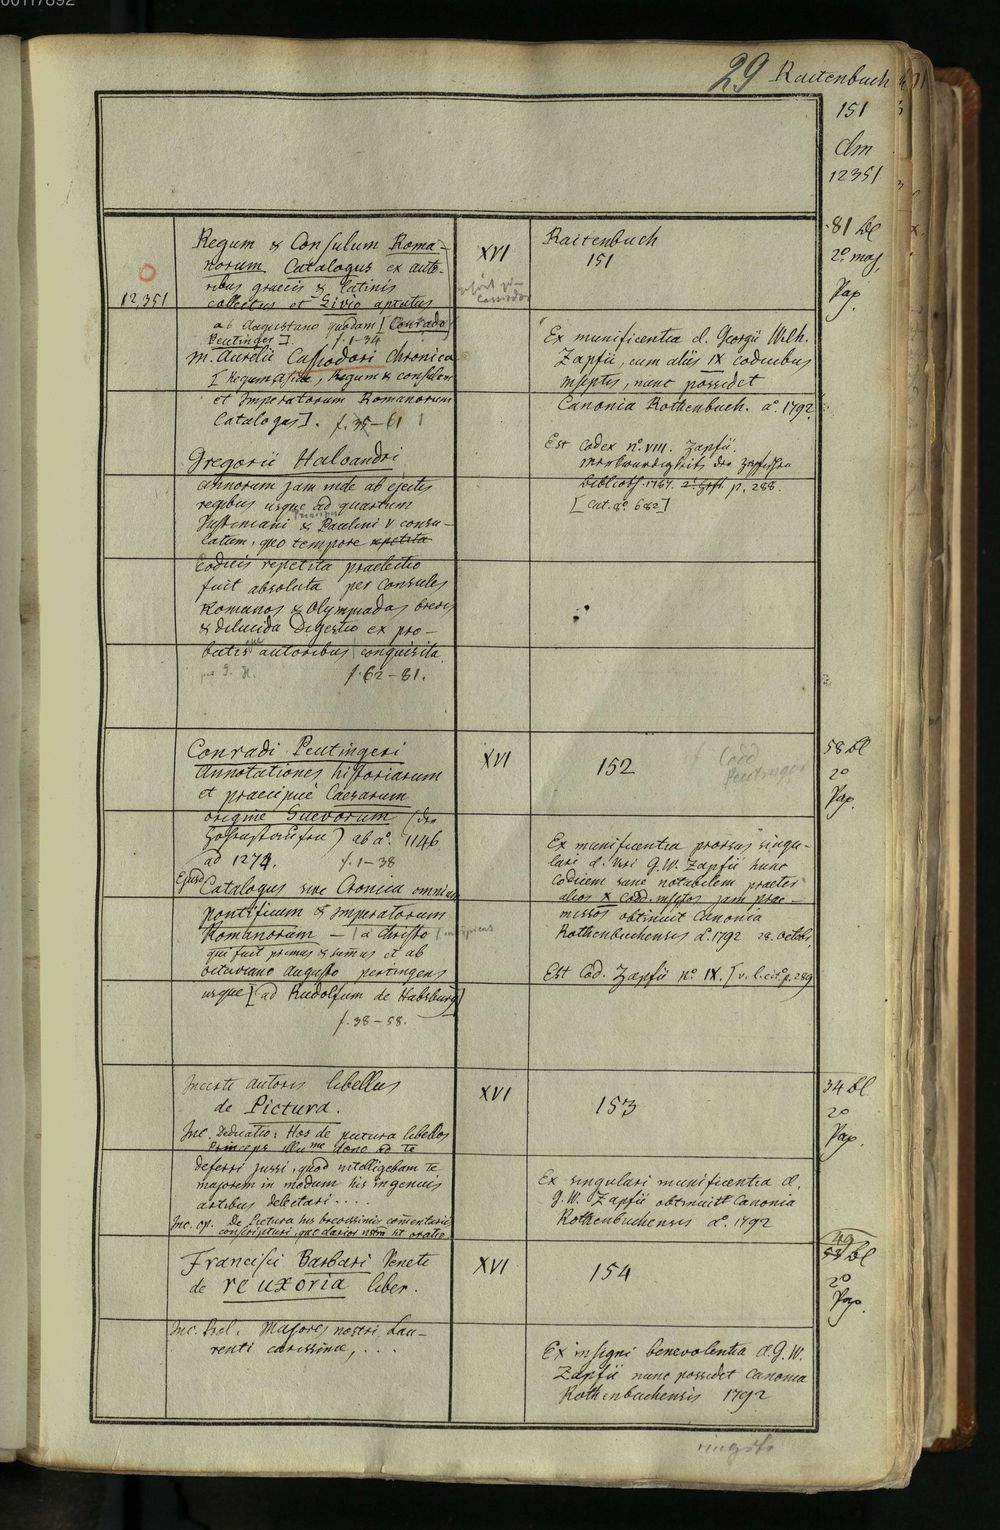 00117892
29 Raitenbuch
151
clm
12351
Regum & Consulum Roma-
norum Catalogus ex auto-
ribus graecis & latinis
collectus et Livio aptatus
ab Augustano quodam [Conrado
Peutinger]. f. 1-34
M. Aurelii Cassiodori Chronica
[Regum Asiae, Regum & consulum
et Imperatorum Romanorum
Catalogus]. f. 35-61
12351
XVI
Raitenbuch
151
81 bl
2º maj.
Pap.
Ex munificentia d. Georgii Wilh.
Zapfii, cum aliis IX codicibus
msptis, nunc possidet
Canonia Rothenbuch. aº. 1792.
Est Codex nº. VIII. Zapfii.
Merkwürdigkeiten der Zapfischen
Biblioth. 1787. p. 288.
[Cat. aº. 682]
Gregorii Haloandri
annorum jam inde ab ejectis
regibus usque ad quartum
Justiniani & Paulini V consu-
latum, quo tempore repetita
Codicis repetita praelectio
fuit absoluta per Consules
Romanos & Olympiadas brevis
& dilucida Digestio ex pro-
batis autoribus conquisita.
f. 62-81.
Conradi Peutingeri
Annotationes historiarum
et praecipue Caesarum
origine Suevorum (der
Hohenstaufen) ab aº. 1146
ad 1274. f. 1-38
Ejusd Catalogus sive Cronica omnium
pontificum & imperatorum
Romanorum - a Christo
qui fuit primus & summus et ab
octaviano Augusto pertingens
usque [ad Rudolfum de Habsburg]
f. 38-58.
XVI
152
Codd
Peutinger
58 bl
2º
Pap.
Ex munificentia prorsus singu-
lari d. G. W. Zapfii hunc
codicem sane notabilem praeter
alios X Codd. msptos jam prae-
missos obtinuit Canonia
Rothenbuchensis aº. 1792 28. octobr.
Est Cod. Zapfii nº IX. [v. l. cit. p. 289
Incerti autoris libellus
de Pictura.
Inc. Dedicatio: Hos de pictura libellos
Princeps illume dono ad te
deferri jussi, quod intelligebam te
majorem in modum his ingenuis
artibus delectari....
Inc. op. De Pictura his brevissimis commentariis
conscripturi, quo clarior nostra sit oratio.
XVI
153
34 bl.
2º
Pap.
Ex singulari munificentia d.
G. W. Zapfii obtinuit Canonia
Rothenbuchensis aº. 1792
Francisci Barbari Veneti
de re uxoria liber.
Inc. Prol. Majores nostri, Lau-
renti carissime, ...
XVI
154
49
53 bl
2º
Pap.
Ex insigni benevolentia d. G. W.
Zapfii nunc possidet Canonia
Rothenbuchensis 1792